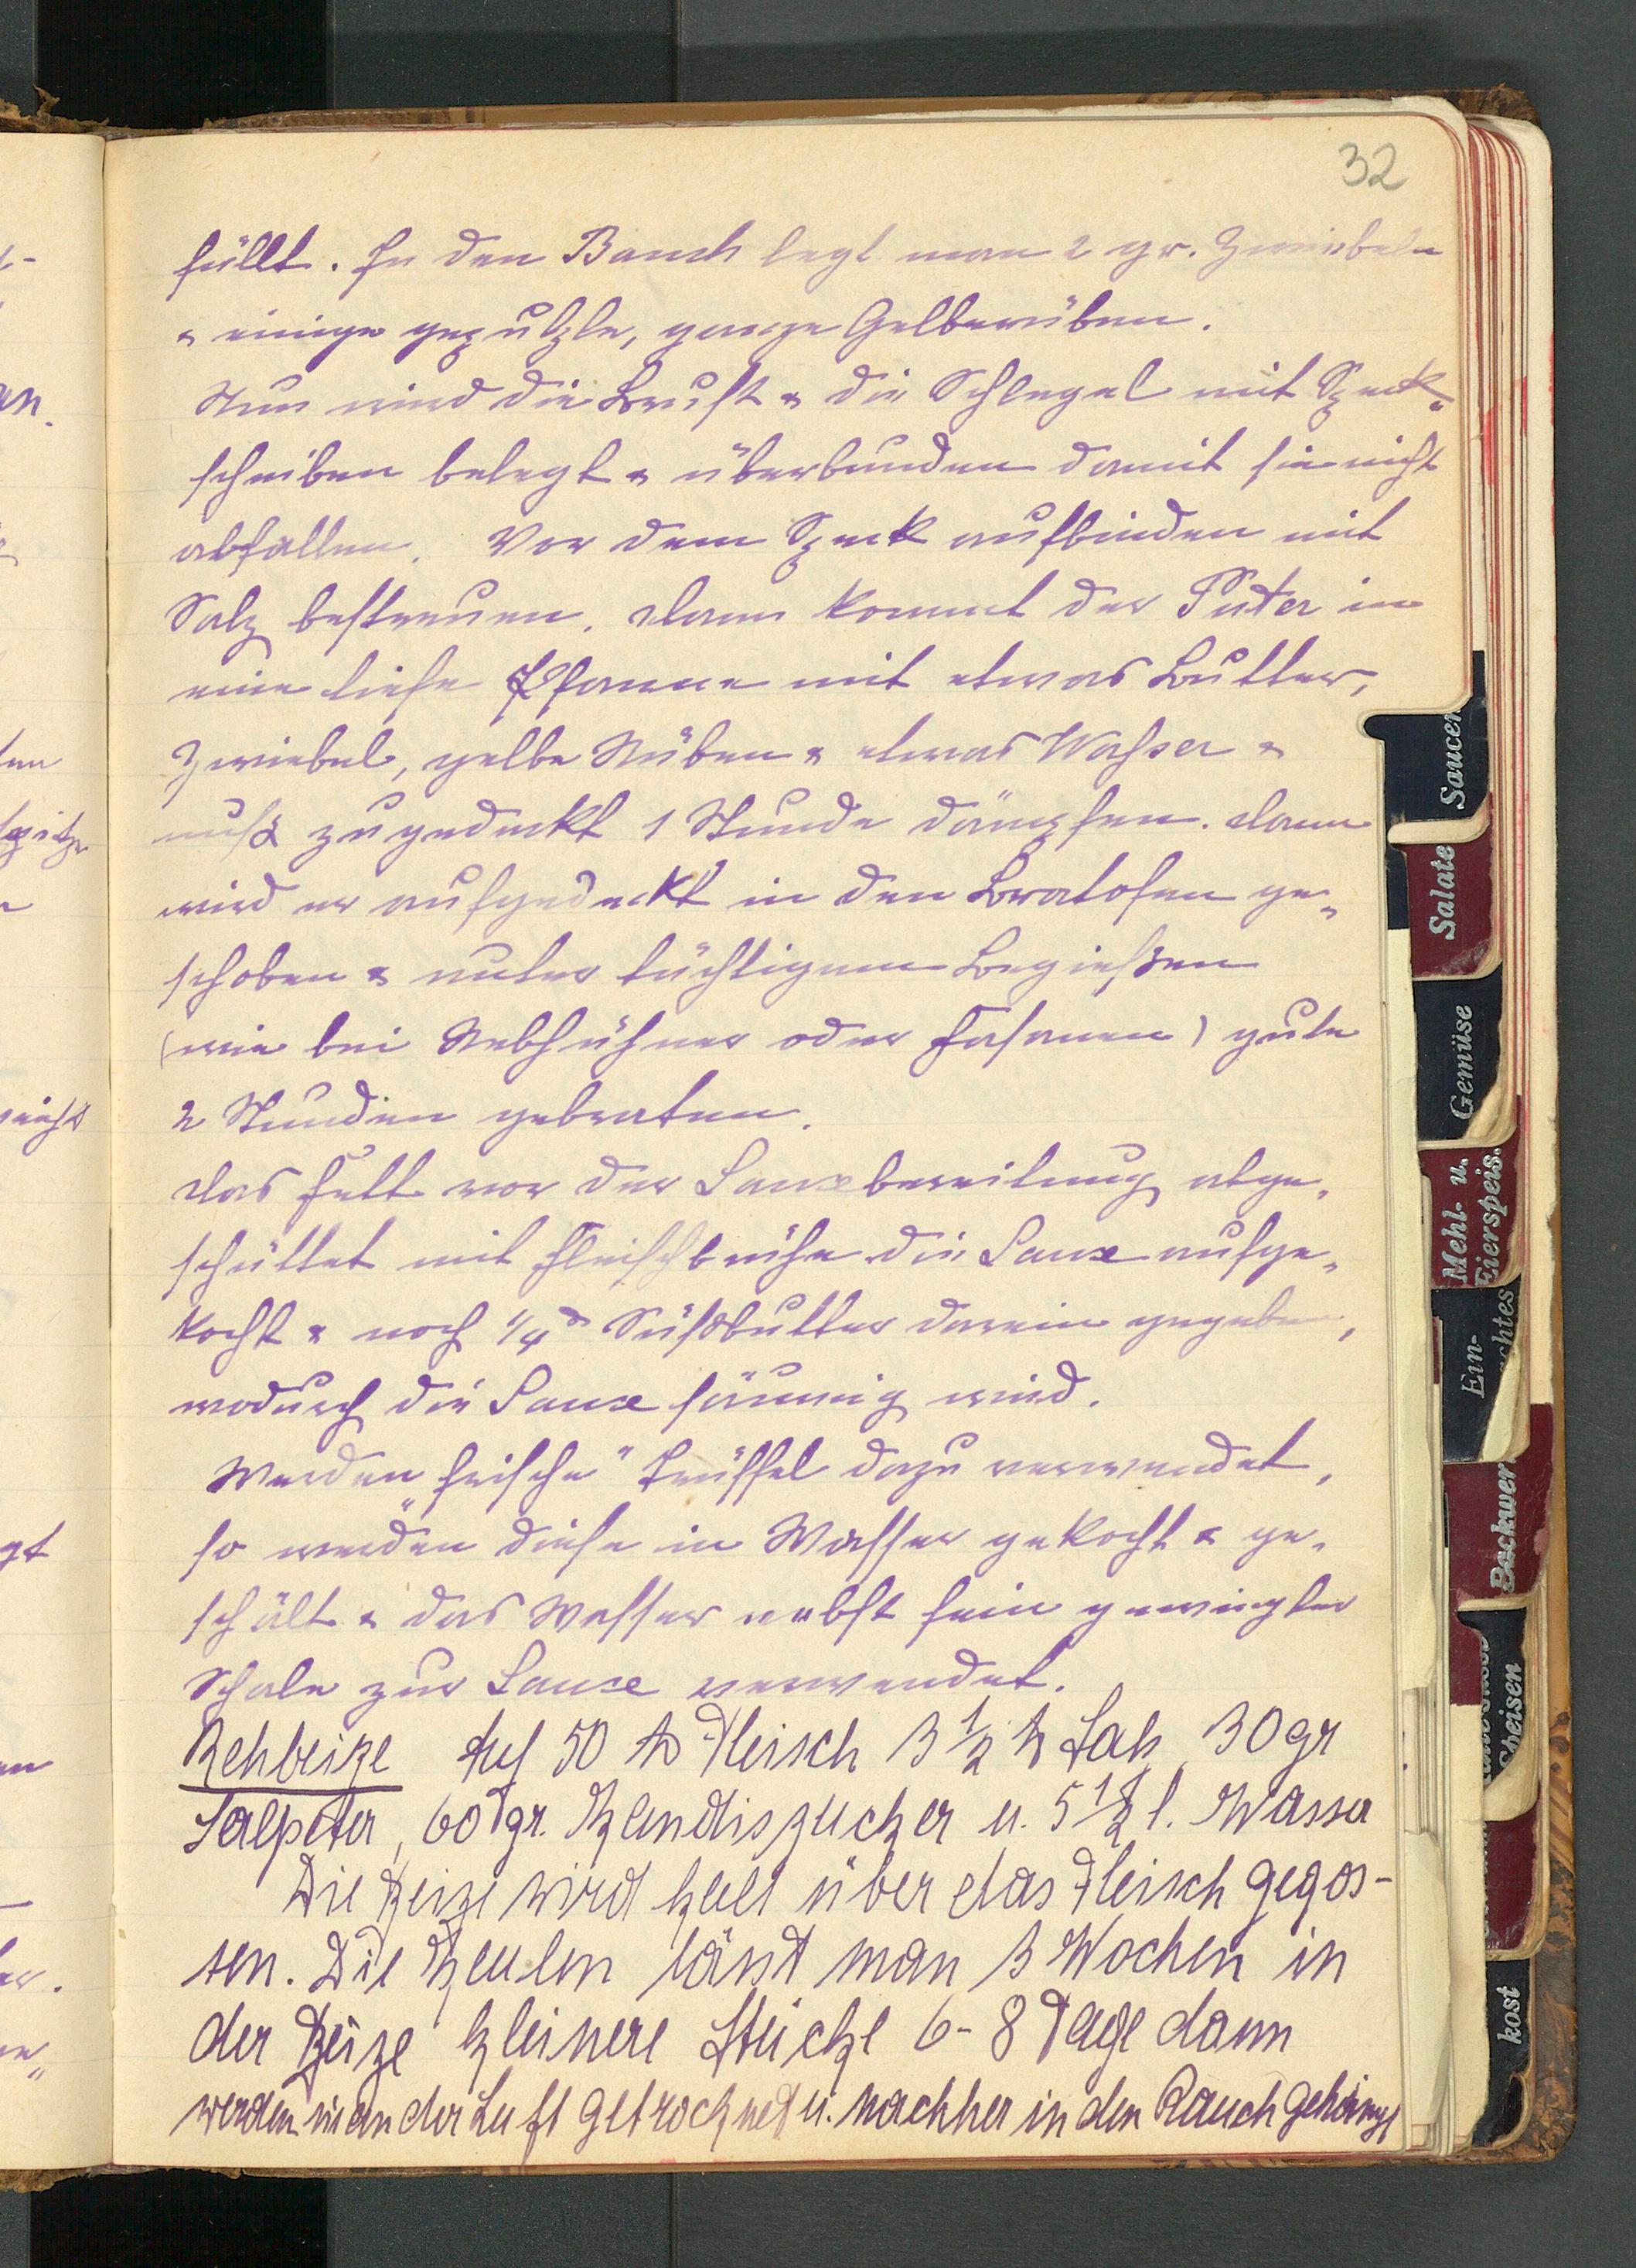 32
füllt. In den Bauch legt man 2 gr. Zwiebeln
& einige geputzte, ganze Gelberüben.
Nun wird die Brust & die Schlegel mit Speck-
scheiben belegt & überbunden damit sie nicht
abfallen. Vor dem Speck aufbinden mit
Salz bestreuen. Dann kommt der Puter in
eine tiefe Pfanne mit etwas Butter,
Zwiebel, gelbe Rüben & etwas Wasser &
muß zugedeckt 1 Stunde dämpfen. Dann
wird er aufgedeckt in den Bratofen ge-
schoben & unter tüchtigem Begießen
(wie bei Rebhühner oder Fasanen) gute
2 Stunden gebraten.
Das Fett vor der Saucebereitung abge-
schüttet mit Fleischbrühe die Sauce aufge-
kocht & noch 1/4 Süßbutter darein gegeben,
wodurch die Sauce sämig wird.
Werden "frische" Trüffel dazu verwendet,
so werden diese in Wasser gekocht & ge-
schält & das Wasser nebst fein gewiegter
Schale zur Sauce verwendet.
Rehbeize Auf 50 ℔ Fleisch 3 1/2 ℔ Salz 30 gr
Salpeter, 60 gr. Kandiszucker u. 5 1/2 l. Wasser
Die Beize wird kalt über das Fleisch gegos-
sen. Die Keulen lässt man 3 Wochen in
der Beize kleinere Stücke 6-8 Tage dann
werden in an der Luft getrocknet u. nachher in den Rauch gehängt
Saucen
Salate
Gemüse
Mehl- u.
Eierspeis.
Ein-
chtes
Backwer
Speisen
kost